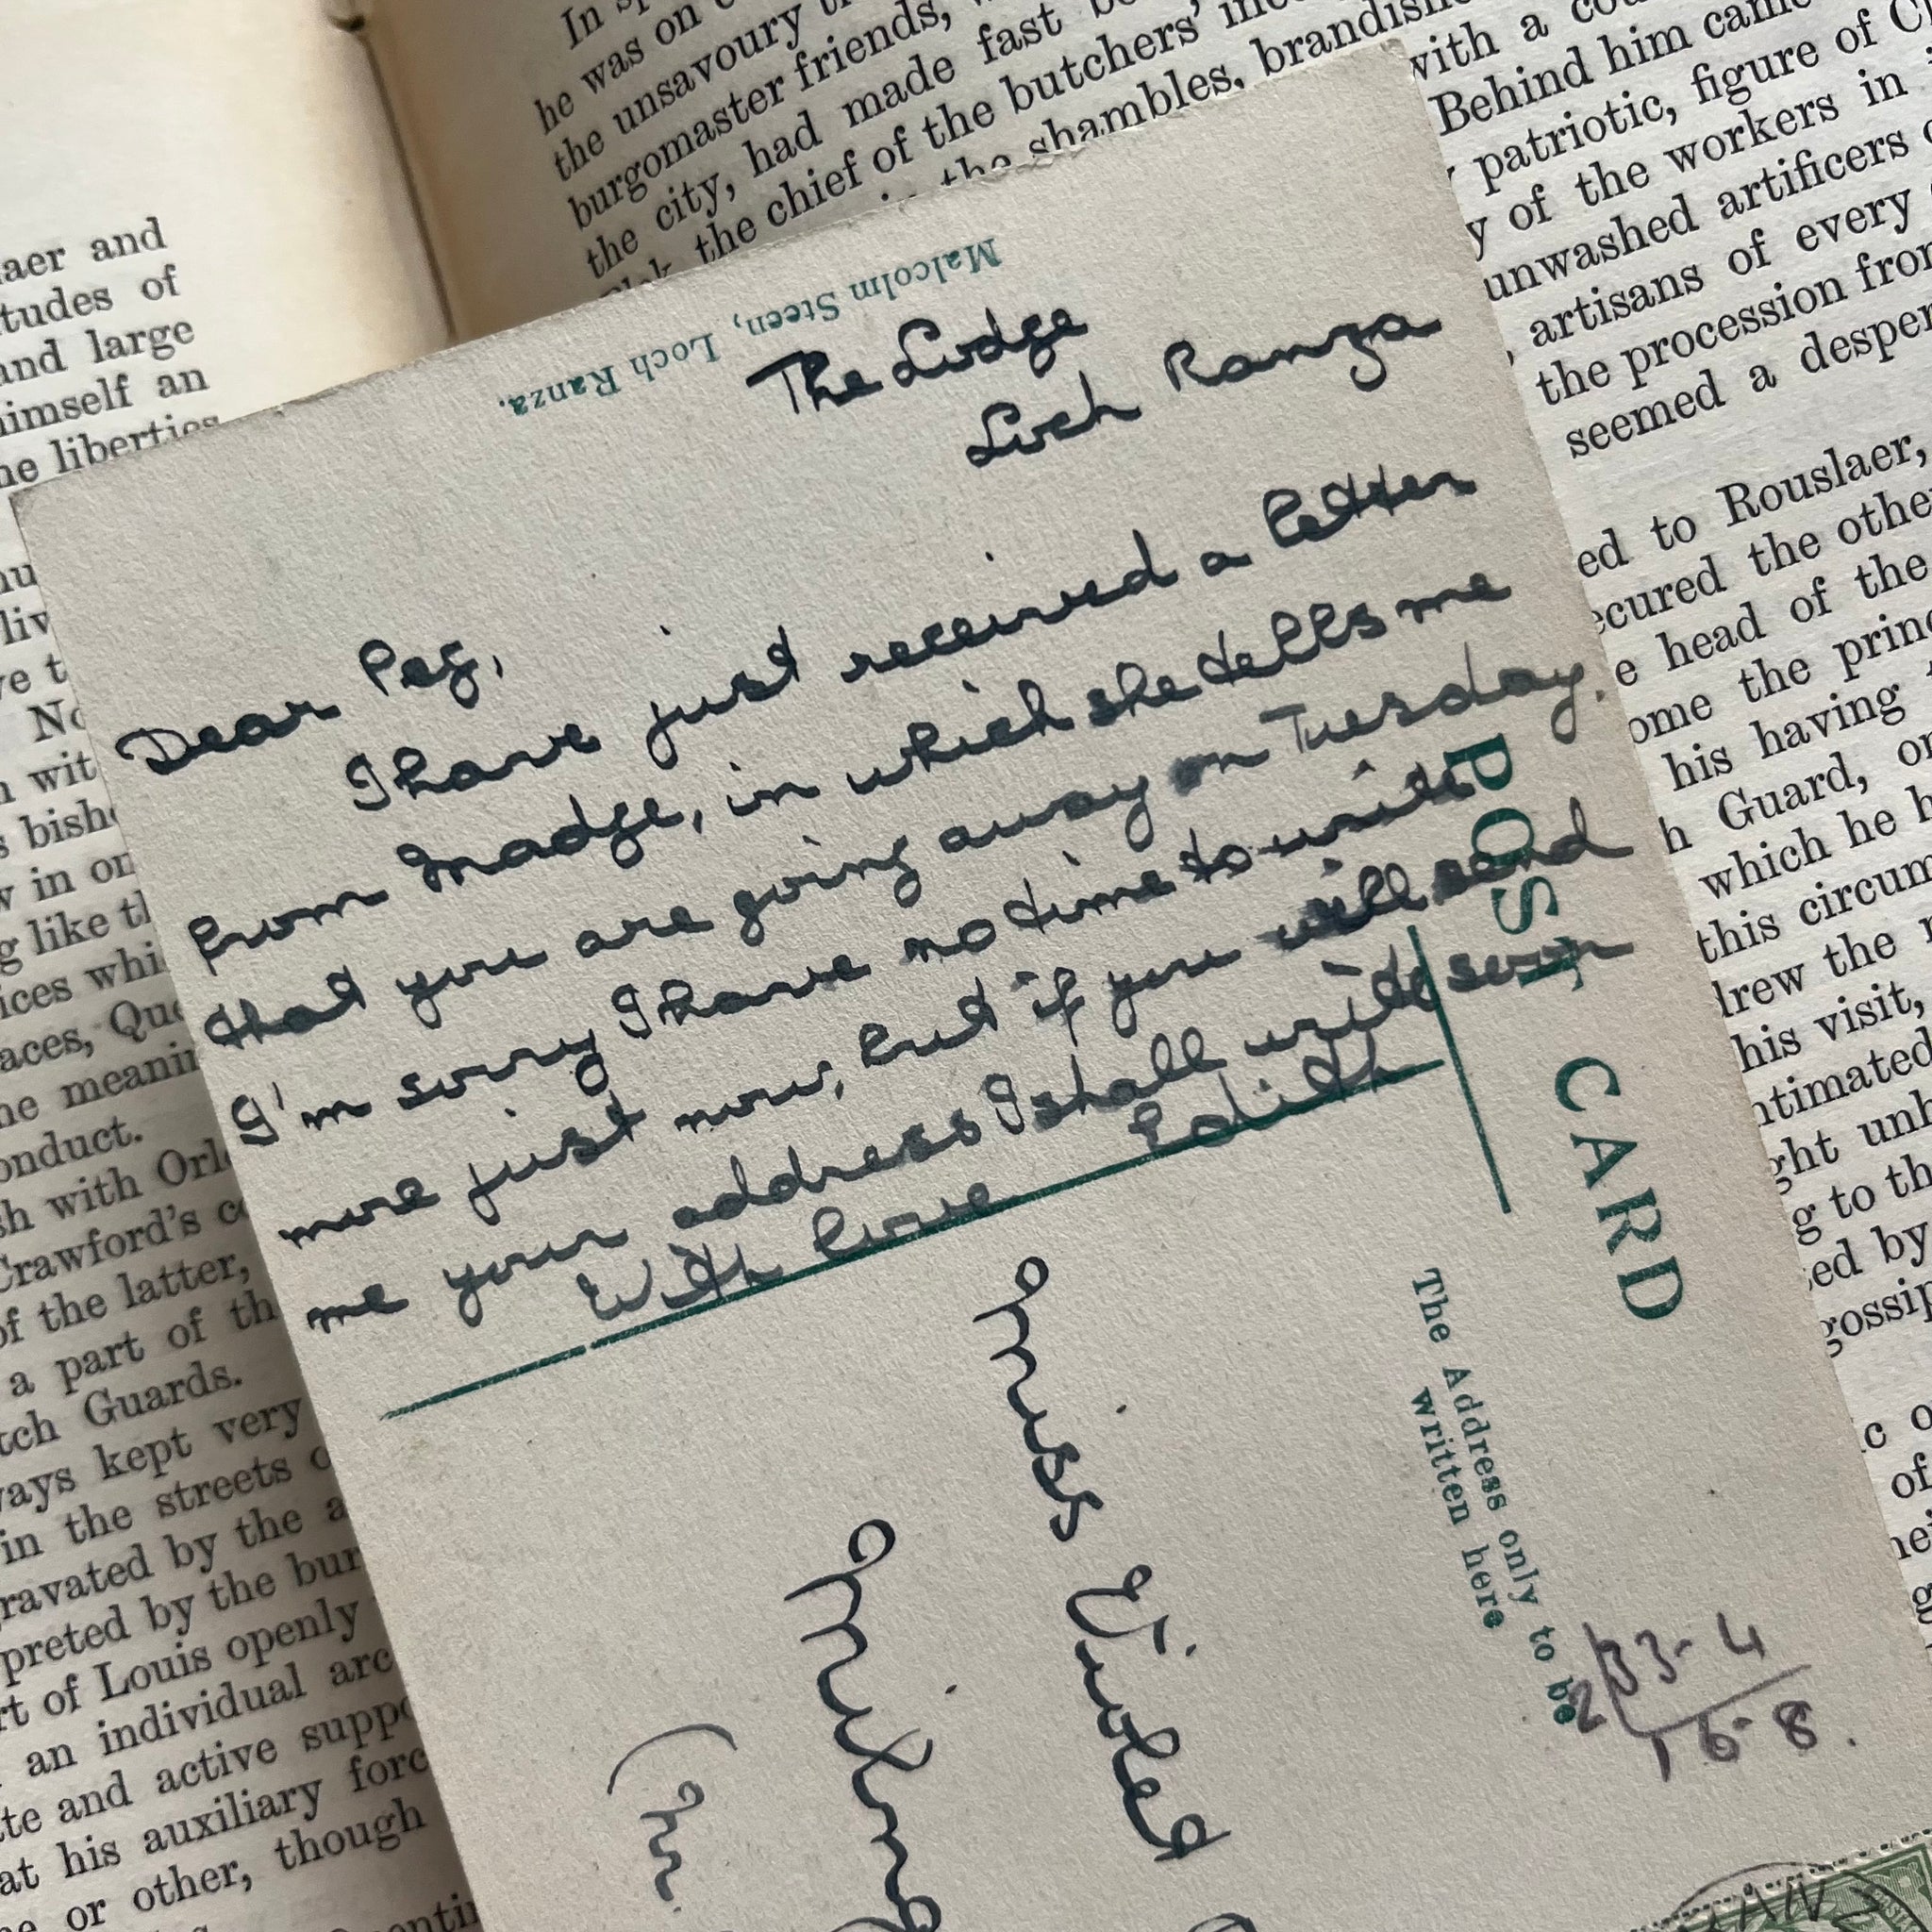 In
he was on
the unsavoury
burgomaster friends,
the city, had made fast
the chief of the butchers'
the shambles, brandishe
with a
Behind him came
patriotic, figure of
y of the workers in
unwashed artificers
artisans of every
the procession from
seemed a desper
ed to Rouslaer,
ecured the othe
e head of the
ome the princ
his having
h Guard, or
which he h
this circum
drew the
his visit,
ntimated
ght unh
g to th
ed by
gossip
laer and
tudes of
and large
himself an
he liberties
liv
ve t
No
n wit
s bisho
w in on
g like th
ices whi
aces, Que
he meanin
onduct.
sh with Orle
Crawford's co
of the latter,
a part of th
tch Guards.
ways kept very
in the streets o
ravated by the a
preted by the bur
rt of Louis openly
an individual arc
te and active suppo
at his auxiliary forc
e or other, though
Malcolm Steen, Loch Ranza.
The Lodge
Loch Ranza
Dear Peg,
I have just received a letter
from Madge, in which she tells me
that you are going away on Tuesday.
I'm sorry I have no time to write
more just now, but if you will send
me your address I shall write soon
With love Edith
POST CARD
The Address only to be
written here
Miss Eivled
2 33-4
16-8.